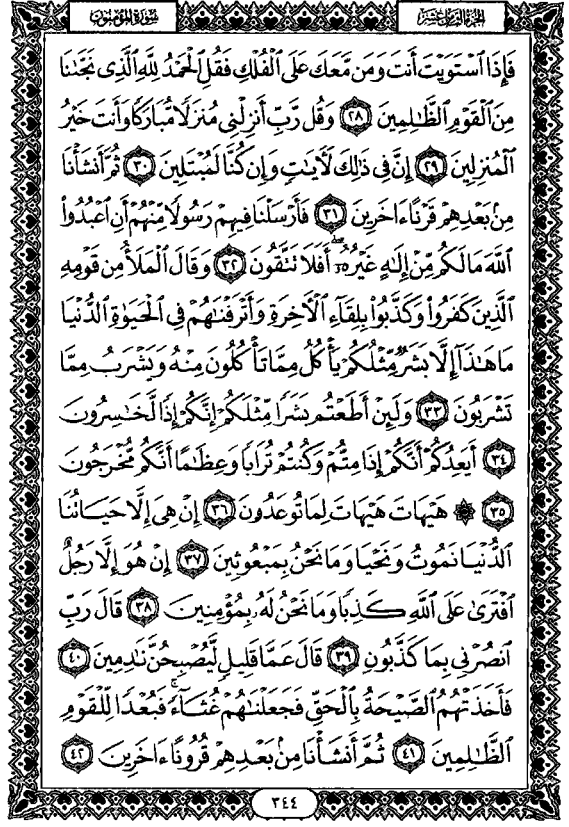 سُورَةُ المؤمنون
الجزء الثامن عشر
فَإِذَا ٱسْتَوَيْتَ أَنتَ وَمَن مَّعَكَ عَلَى ٱلْفُلْكِ فَقُلِ ٱلْحَمْدُ لِلَّهِ ٱلَّذِى نَجَّىٰنَا
مِنَ ٱلْقَوْمِ ٱلظَّٰلِمِينَ ٢٨ وَقُل رَّبِّ أَنزِلْنِى مُنزَلًا مُّبَارَكًا وَأَنتَ خَيْرُ
ٱلْمُنزِلِينَ ٢٩ إِنَّ فِى ذَٰلِكَ لَءَايَٰتٍ وَإِن كُنَّا لَمُبْتَلِينَ ٣٠ ثُمَّ أَنشَأْنَا
مِنۢ بَعْدِهِمْ قَرْنًا ءَاخَرِينَ ٣١ فَأَرْسَلْنَا فِيهِمْ رَسُولًا مِّنْهُمْ أَنِ ٱعْبُدُوا۟
ٱللَّهَ مَا لَكُم مِّنْ إِلَٰهٍ غَيْرُهُۥٓ ۖ أَفَلَا تَتَّقُونَ ٣٢ وَقَالَ ٱلْمَلَأُ مِن قَوْمِهِ
ٱلَّذِينَ كَفَرُوا۟ وَكَذَّبُوا۟ بِلِقَآءِ ٱلْءَاخِرَةِ وَأَتْرَفْنَٰهُمْ فِى ٱلْحَيَوٰةِ ٱلدُّنْيَا
مَا هَٰذَآ إِلَّا بَشَرٌ مِّثْلُكُمْ يَأْكُلُ مِمَّا تَأْكُلُونَ مِنْهُ وَيَشْرَبُ مِمَّا
تَشْرَبُونَ ٣٣ وَلَئِنْ أَطَعْتُم بَشَرًا مِّثْلَكُمْ إِنَّكُمْ إِذًا لَّخَٰسِرُونَ
٣٤ أَيَعِدُكُمْ أَنَّكُمْ إِذَا مِتُّمْ وَكُنتُمْ تُرَابًا وَعِظَٰمًا أَنَّكُم مُّخْرَجُونَ
٣٥ ۞ هَيْهَاتَ هَيْهَاتَ لِمَا تُوعَدُونَ ٣٦ إِنْ هِىَ إِلَّا حَيَاتُنَا
ٱلدُّنْيَا نَمُوتُ وَنَحْيَا وَمَا نَحْنُ بِمَبْعُوثِينَ ٣٧ إِنْ هُوَ إِلَّا رَجُلٌ
ٱفْتَرَىٰ عَلَى ٱللَّهِ كَذِبًا وَمَا نَحْنُ لَهُۥ بِمُؤْمِنِينَ ٣٨ قَالَ رَبِّ
ٱنصُرْنِى بِمَا كَذَّبُونِ ٣٩ قَالَ عَمَّا قَلِيلٍ لَّيُصْبِحُنَّ نَٰدِمِينَ ٤٠
فَأَخَذَتْهُمُ ٱلصَّيْحَةُ بِٱلْحَقِّ فَجَعَلْنَٰهُمْ غُثَآءً ۚ فَبُعْدًا لِّلْقَوْمِ
ٱلظَّٰلِمِينَ ٤١ ثُمَّ أَنشَأْنَا مِنۢ بَعْدِهِمْ قُرُونًا ءَاخَرِينَ ٤٢
٣٤٤